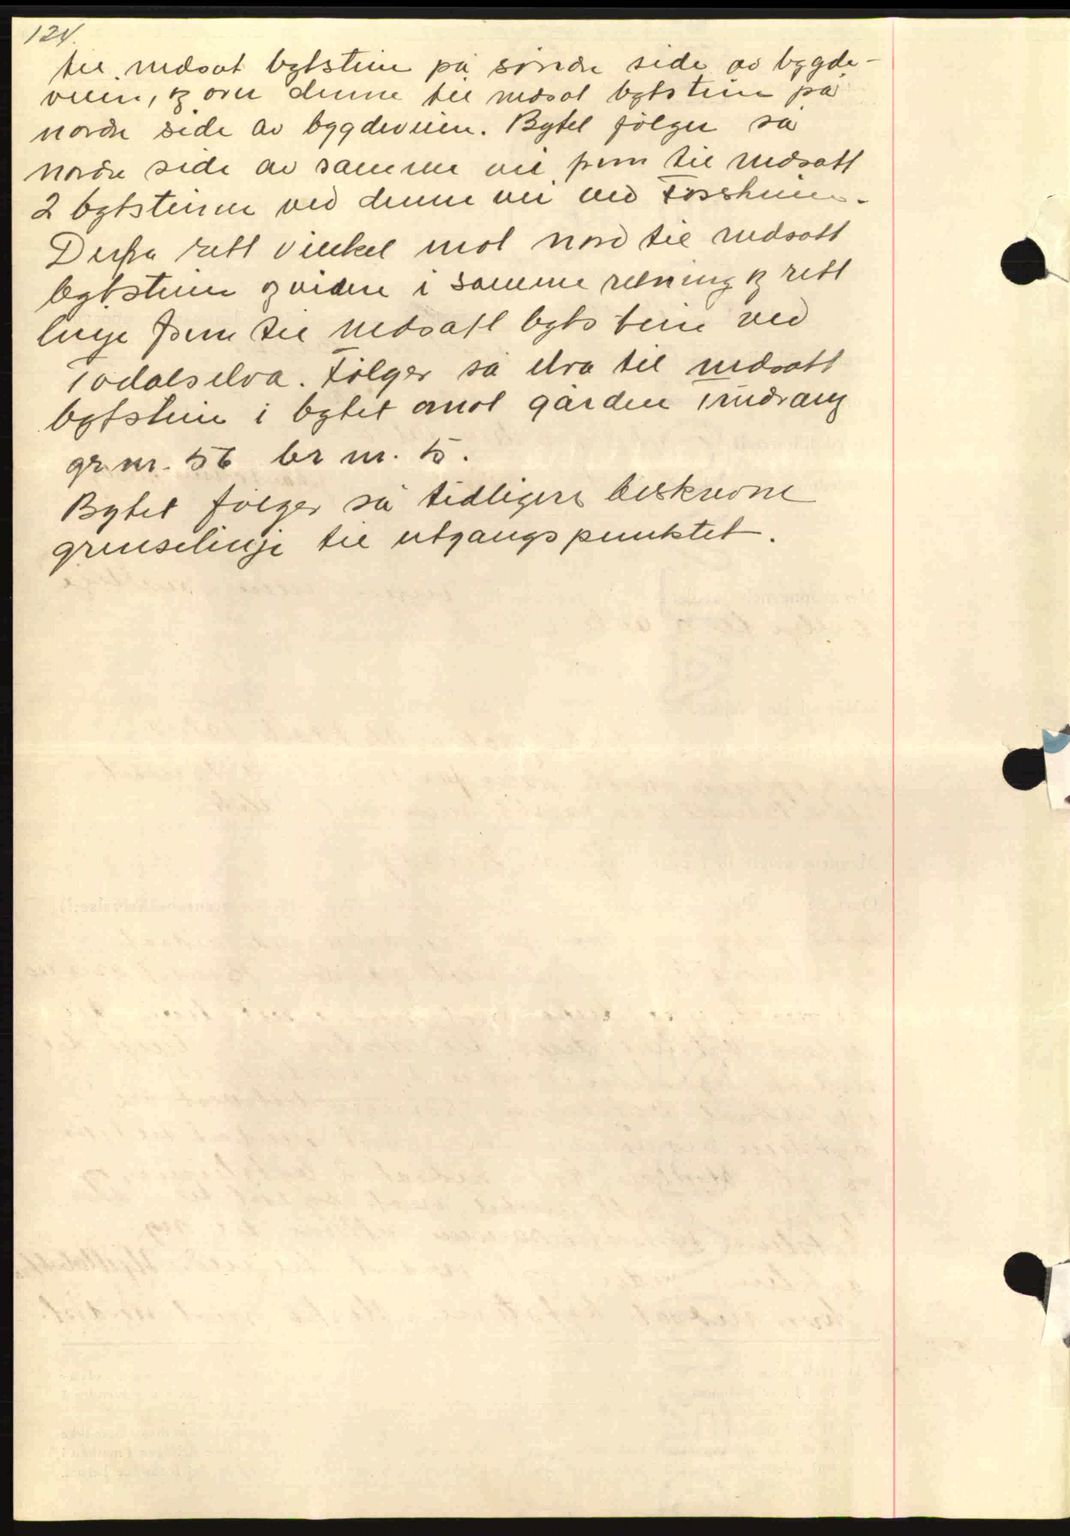 124.
til nedsat bytstein på søndre side av bygde-
veien, og over denne til nedsat bytstein på
nordre side av bygdeveien. Bytet følger så
nordre side av samme vei frem til nedsatt
2 bytsteine ved denne vei ved Fossheim.
Derfra rett vinkel mot nord til nedsatt
bytstein og videre i samme retning og rett
linje frem til nedsatt bytstein ved
Todalselva. Følger så elva til nedsatt
bytstein i bytet mot gården
gr.nr. 56 br nr. 5.
Bytet følger så tidligere beskrevne
grenselinje til utgangspunktet.